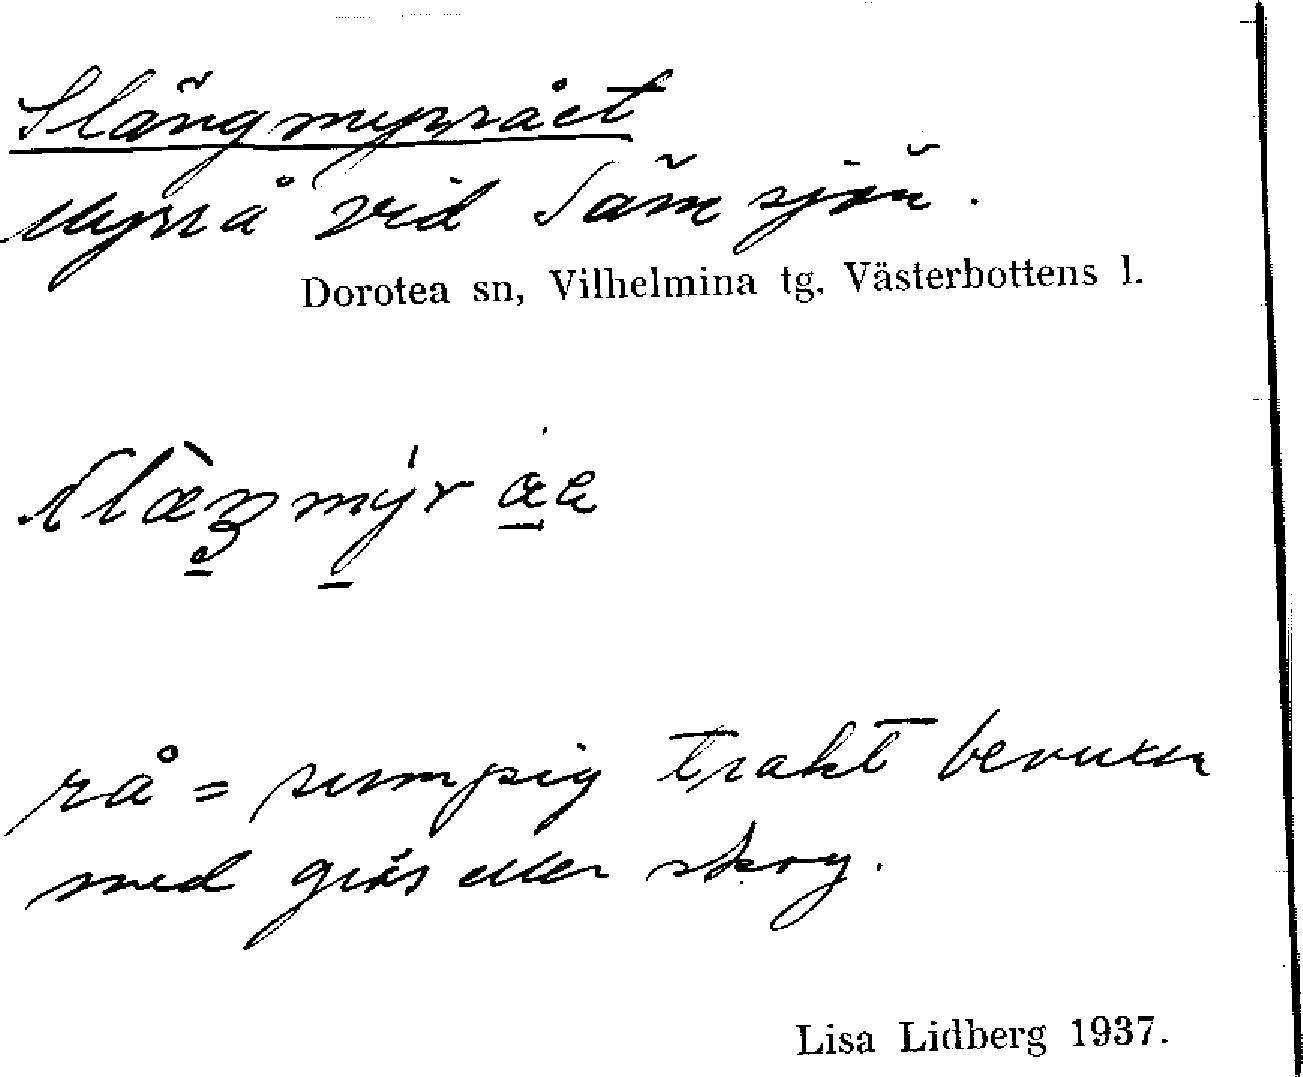 Slängmyrrået
Myrrå vid Sämsjön.
Dorotea sn, Vilhelmina tg, Västerbottens l.
rå = sumpig trakt bevuxen
med gräs eller skog.
Lisa Lidberg 1937.